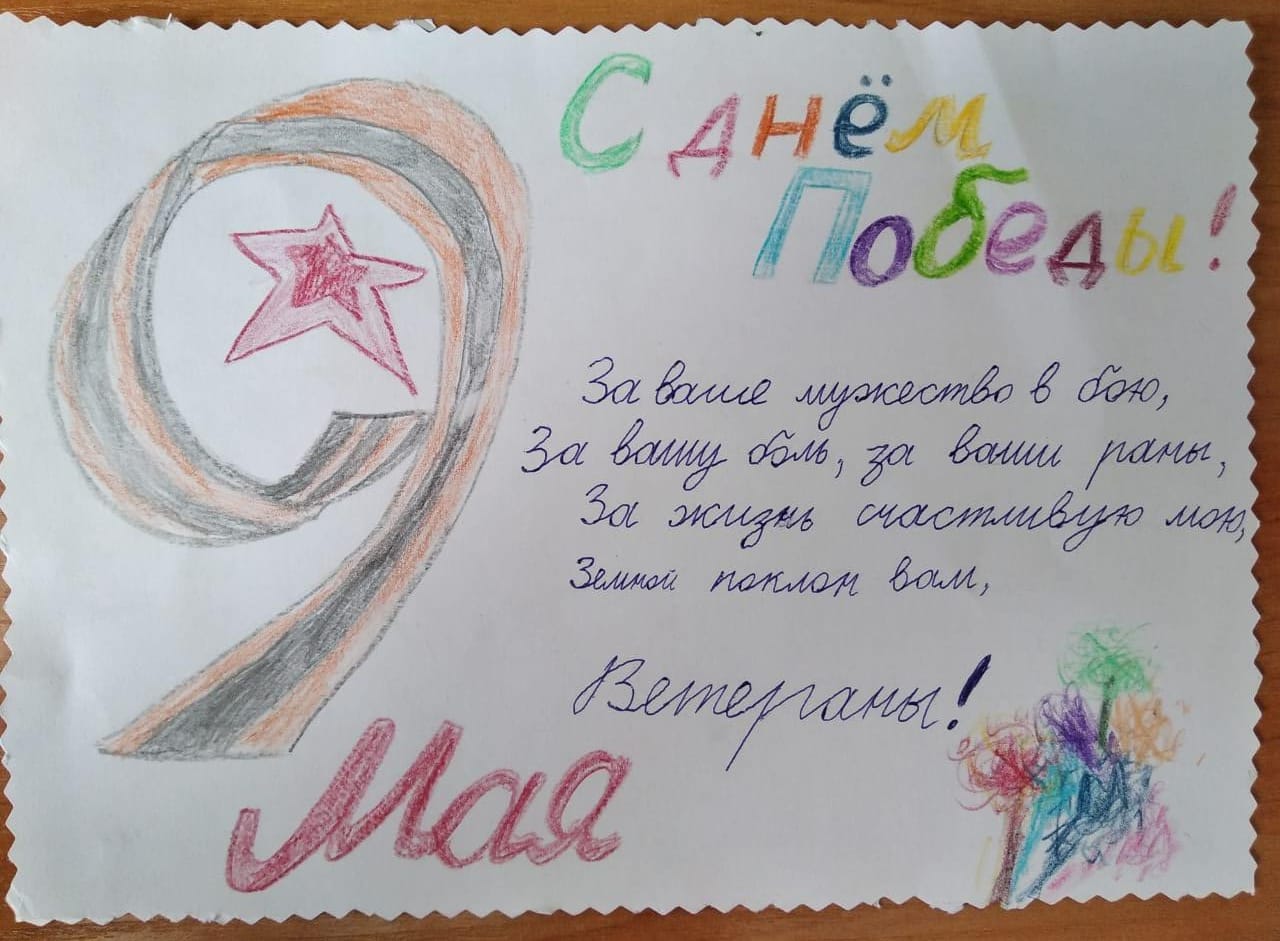 С днём
Победы!
За ваше мужество в бою,
За вашу боль, за ваши раны,
За жизнь счастливую мою,
Земной поклон вам,
Ветераны!
9
Мая